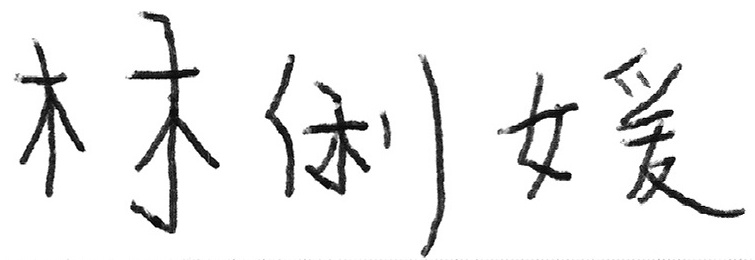 林俐媛